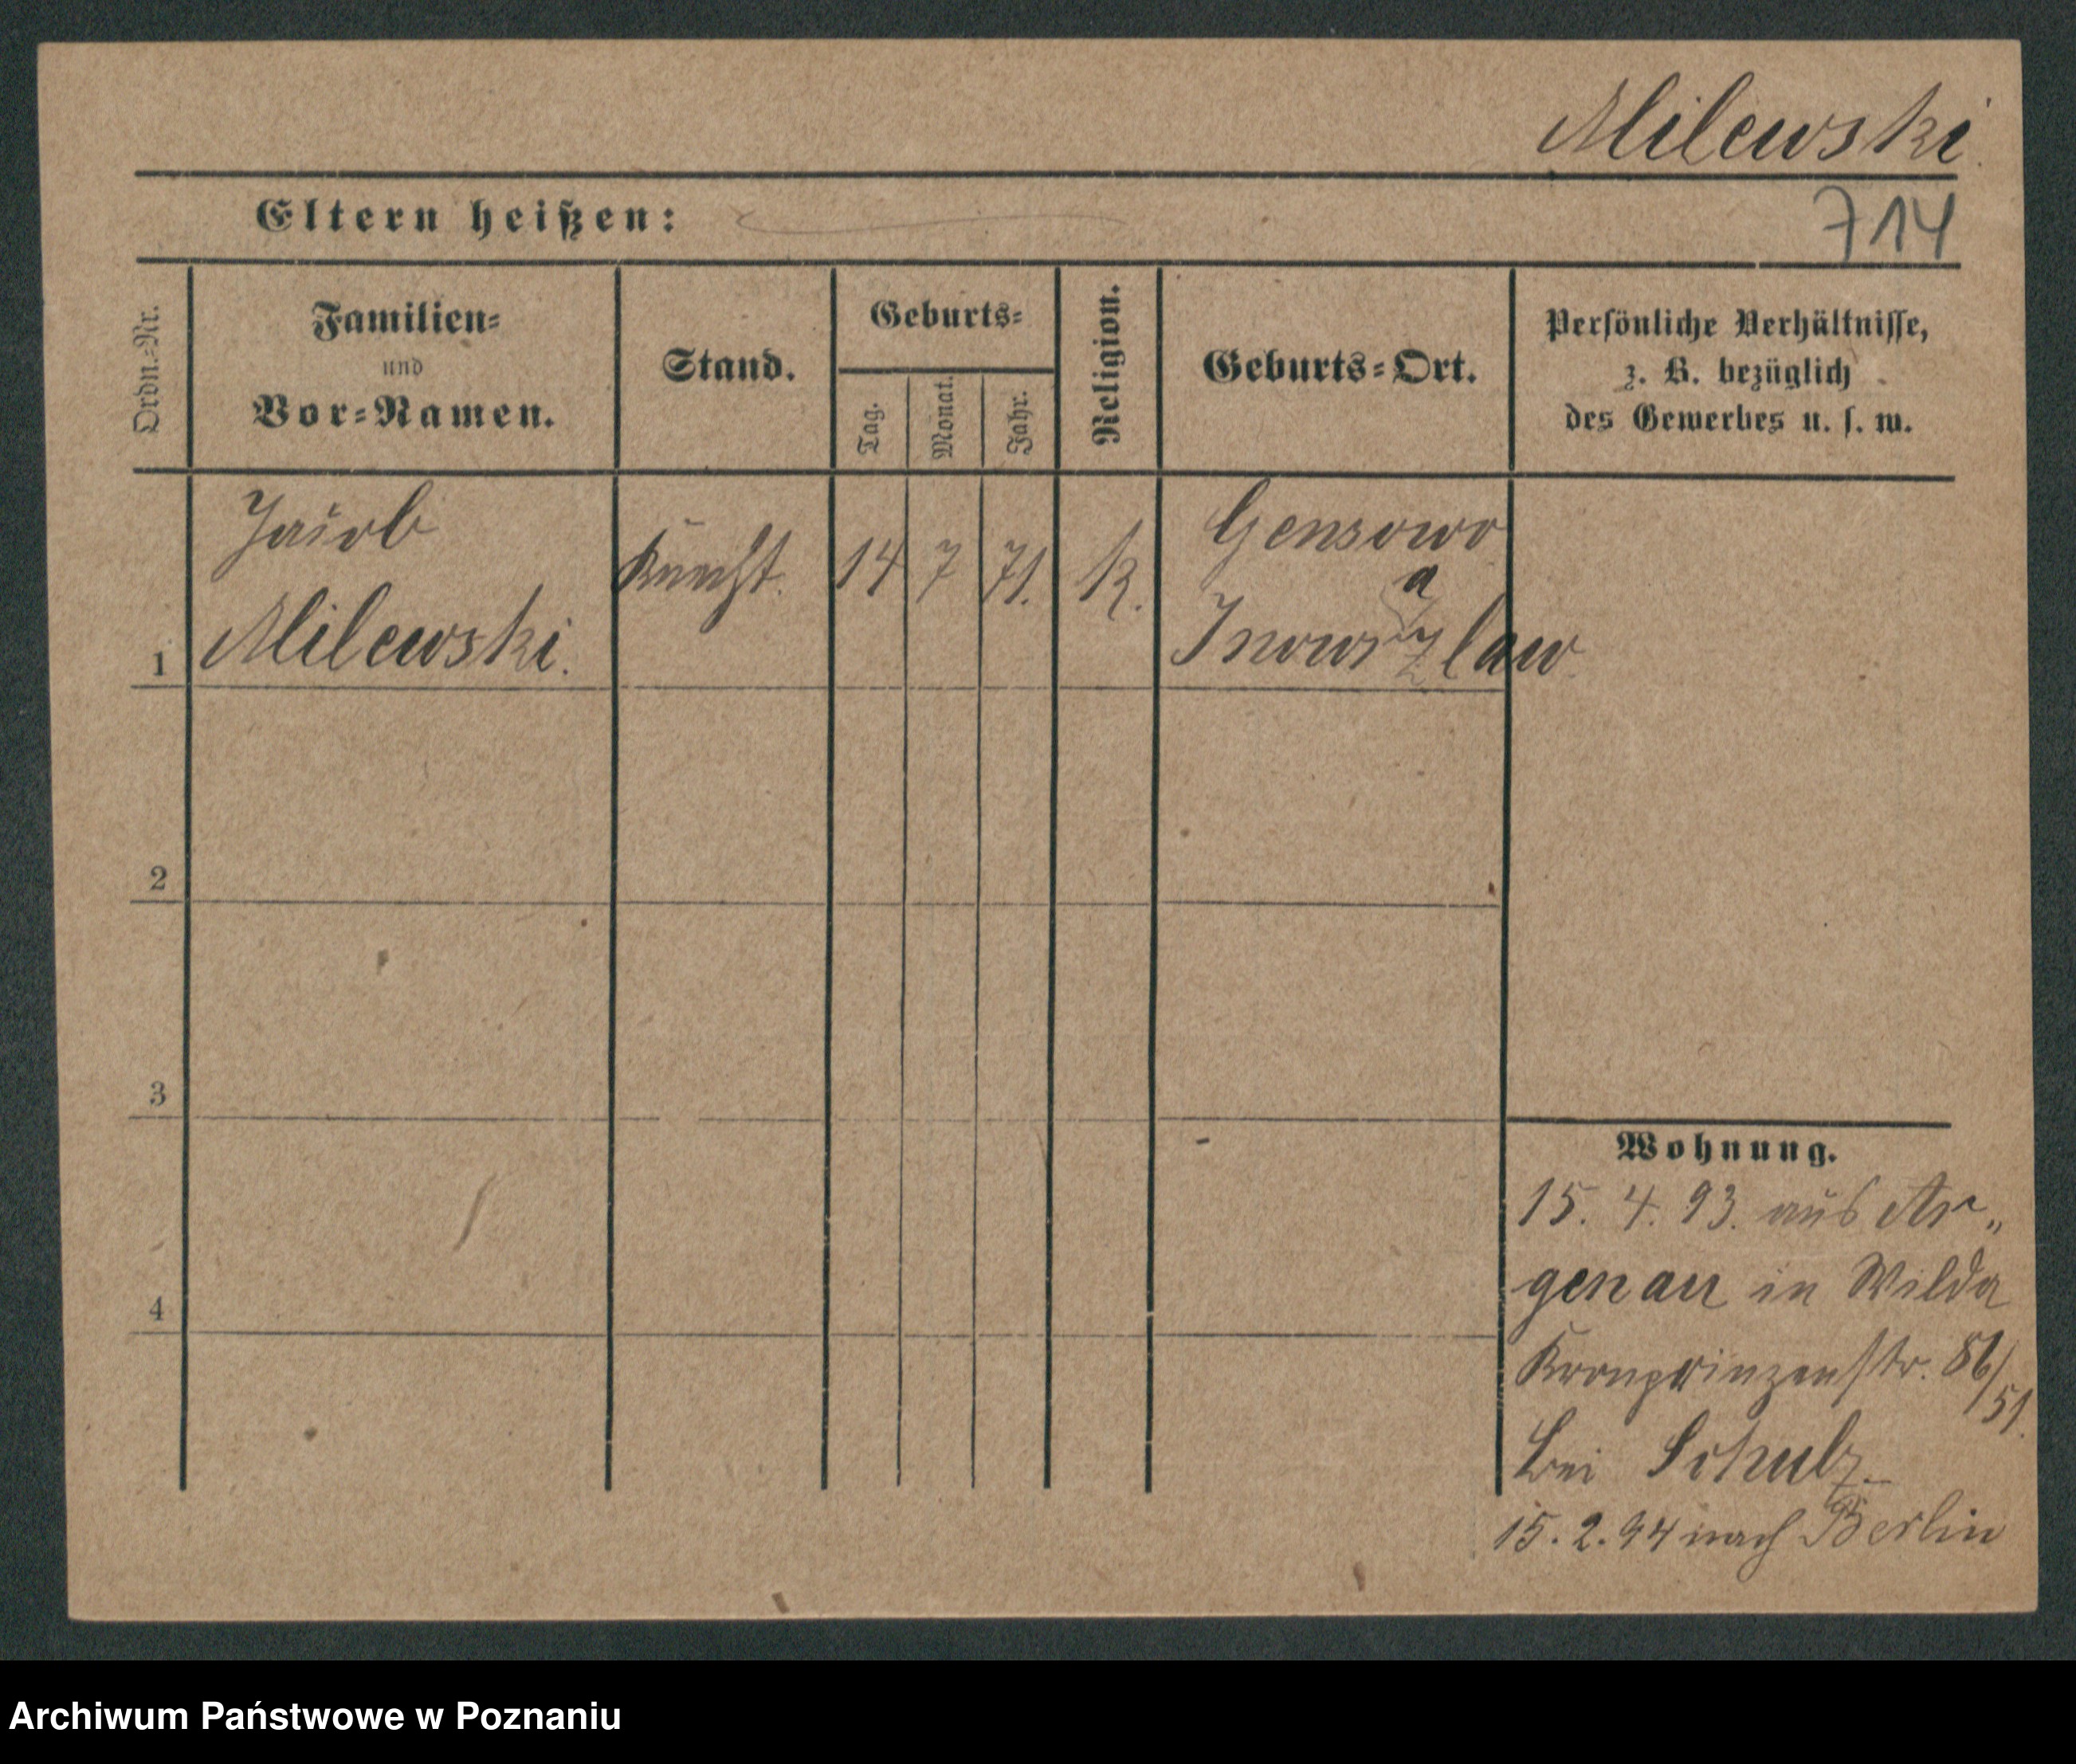 Milewski
Eltern heißen:
714
Ordn.-Nr.
Familien-
und
Vor-Namen.
Stand.
Geburts-
Tag.
Monat.
Jahr.
Religion.
Geburts-Ort.
Persönliche Verhältnisse,
z. B. bezüglich
des Gewerbes u. s. w.
1
Milewski.
Knecht.
14
7
71.
K.
Gensowo
a
2
3
4
Wohnung.
15. 4. 93. aus Ar„
genau in Wilda
Kronprinzenstr. 86/
51.
bei Schulz
15. 2. 94 nach Berlin
Archiwum Państwowe w Poznaniu